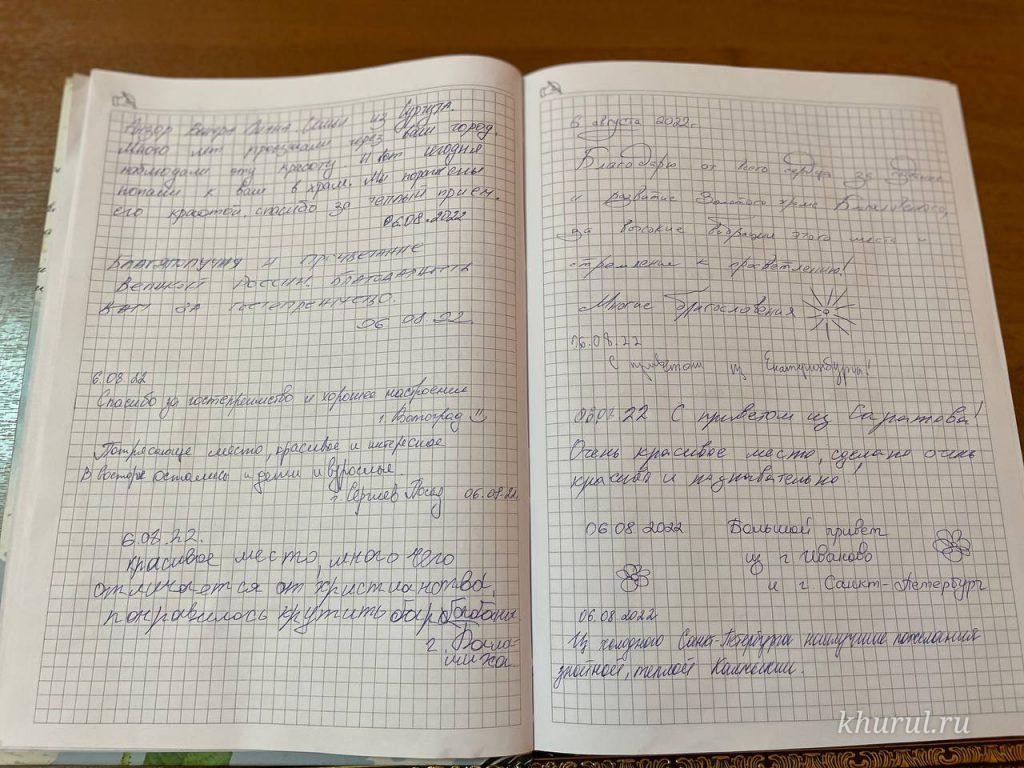 из Сургута
Много лет проезжали через ваш город
наблюдали эту красоту. И вот сегодня
попали к вам в храм. Мы поражены
его красотой. спасибо за теплый прием.
06.08.2022
Благополучия и процветание
Великой России. Благодарность
Вам за гостеприимство.
06.08.22
6.08.22
Спасибо за гостеприимство и хорошее настроение
г. Волгоград
Потрясающее место, красивое и интересное
В восторге остались и дети и взрослые
г. Сергиев Посад 06.08.22.
6.08.22.
красивое место, много чего
отличается от христианства,
понравилось крутить барабаны
г. Бала-
шиха
6 августа 2022г.
Благодарю от всего сердца за
и развитие Золотого храма
за высокие вибрации этого места и
стремления к просветлению!
Многие благословения
06.08.22
С приветом из Екатеринбурга!
22 С приветом из Саратова!
Очень красивое место, сделано очень
красиво и познавательно!
06.08.2022 Большой привет
из г Иваново
и г Санкт-Петербург
06.08.2022
Из холодного Санкт-Петербурга наилучшие пожелания
знойной, теплой Калмыкии.
khurul.ru